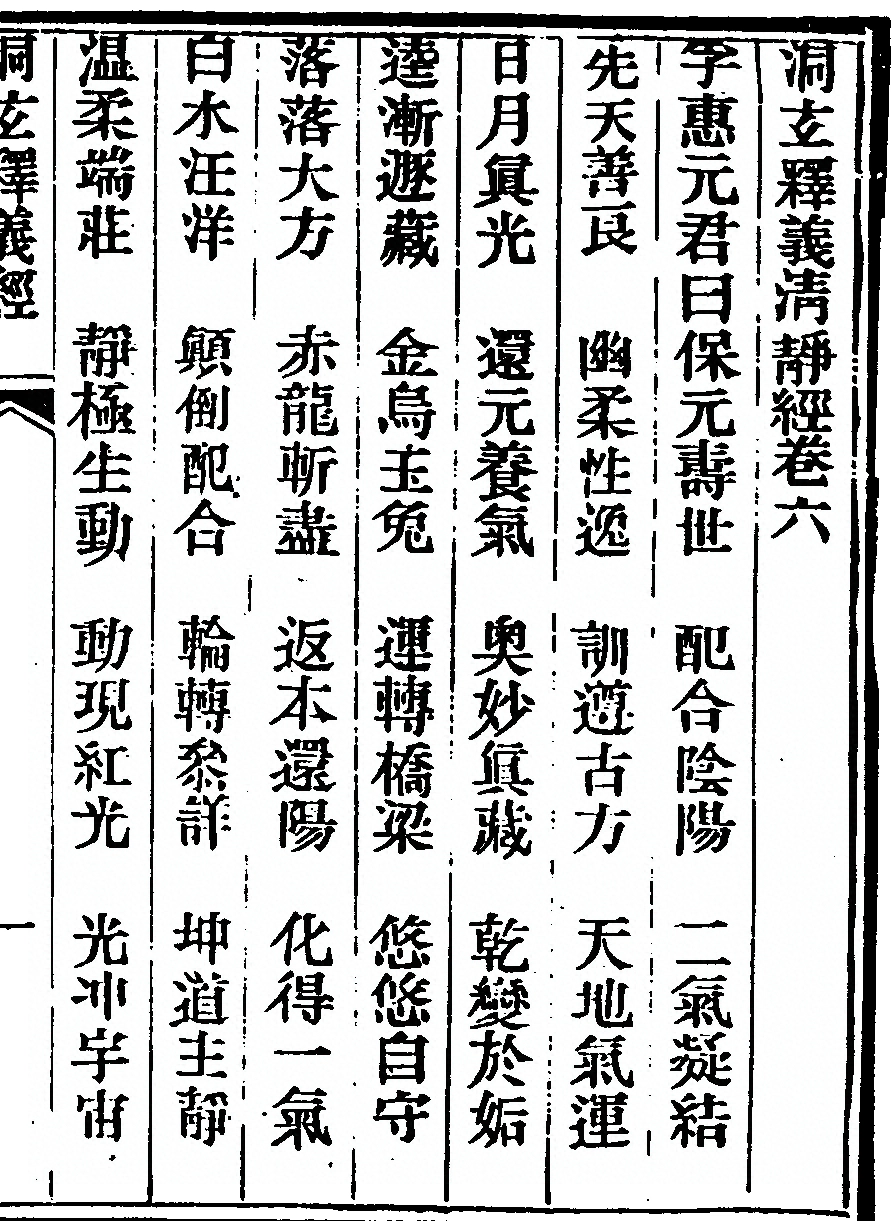 洞玄釋義清靜經卷六
李惠元君曰保元壽世 配合陰陽 二氣凝結
先天善良 幽柔性逸 訓遵古方 天地氣運
日月眞光 還元養氣 奧妙眞藏 乾變於姤
逵漸遯藏 金烏玉兔 運轉橋梁 悠悠自守
落落大方 赤龍斬盡 返本還陽 化得一氣
白水汪洋 顚倒配合 輪轉叅詳 坤道主靜
温柔端莊 靜極生動 動現紅光 光冲宇宙
洞玄釋義經 一